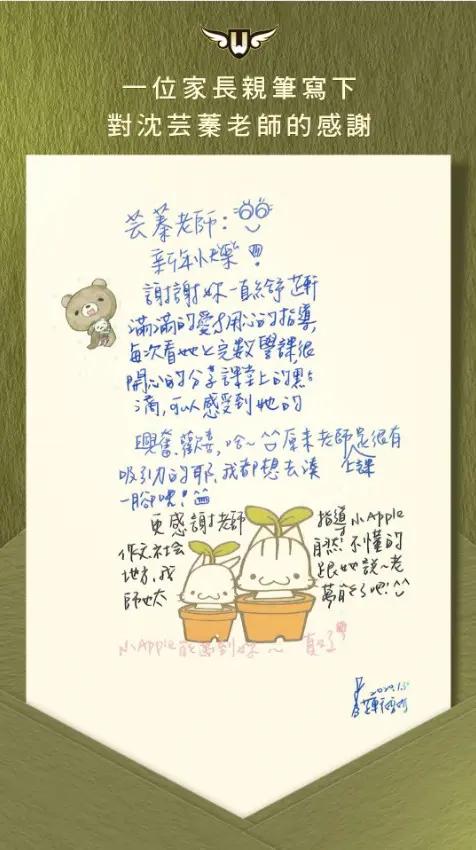 W
一位家長親筆寫下
對沈芸蓁老師的感謝
芸蓁老師:
新年快樂!
謝謝妳一直給舒
滿滿的愛&用心的指導,
每次看她上完數學課,很
開心的分享課堂上的點
滴,可以感受到她的
興奮、歡喜,哈~原來老師是很有
吸引力的耶,我都想去湊
上課
一腳呢!
更感謝老師 指導小Apple
作文.社會 自然!不懂的
地方,我 跟她說~老
師也太 萬能了吧!^^
小Apple能遇到妳~真好
2020.1.5